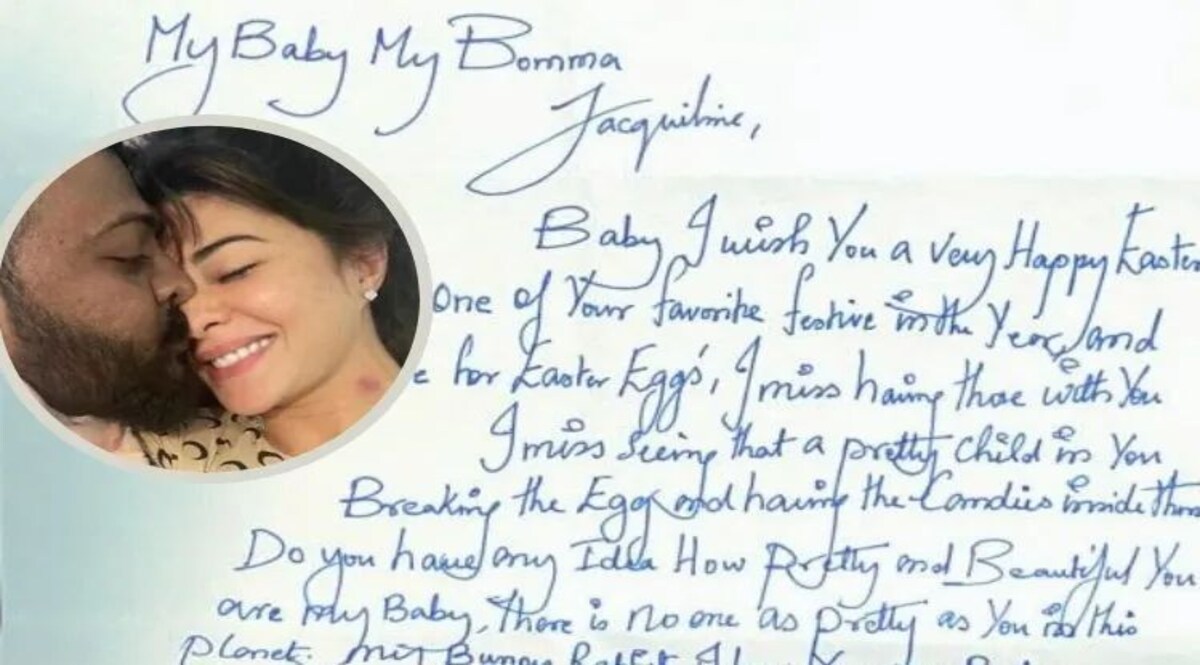 My Baby My Bomma
Jacqueline,
Baby I wish You a very Happy Easter
One of Your favorite festive in the Year, and
e for Easter Eggs', I miss having those with You
I miss seeing that a pretty child in You
Breaking the Egg and having the Candies inside
Do you have any Idea How pretty and Beautiful You
are my Baby, there is no one as pretty as You in this
planet. Bunny Rabbit I